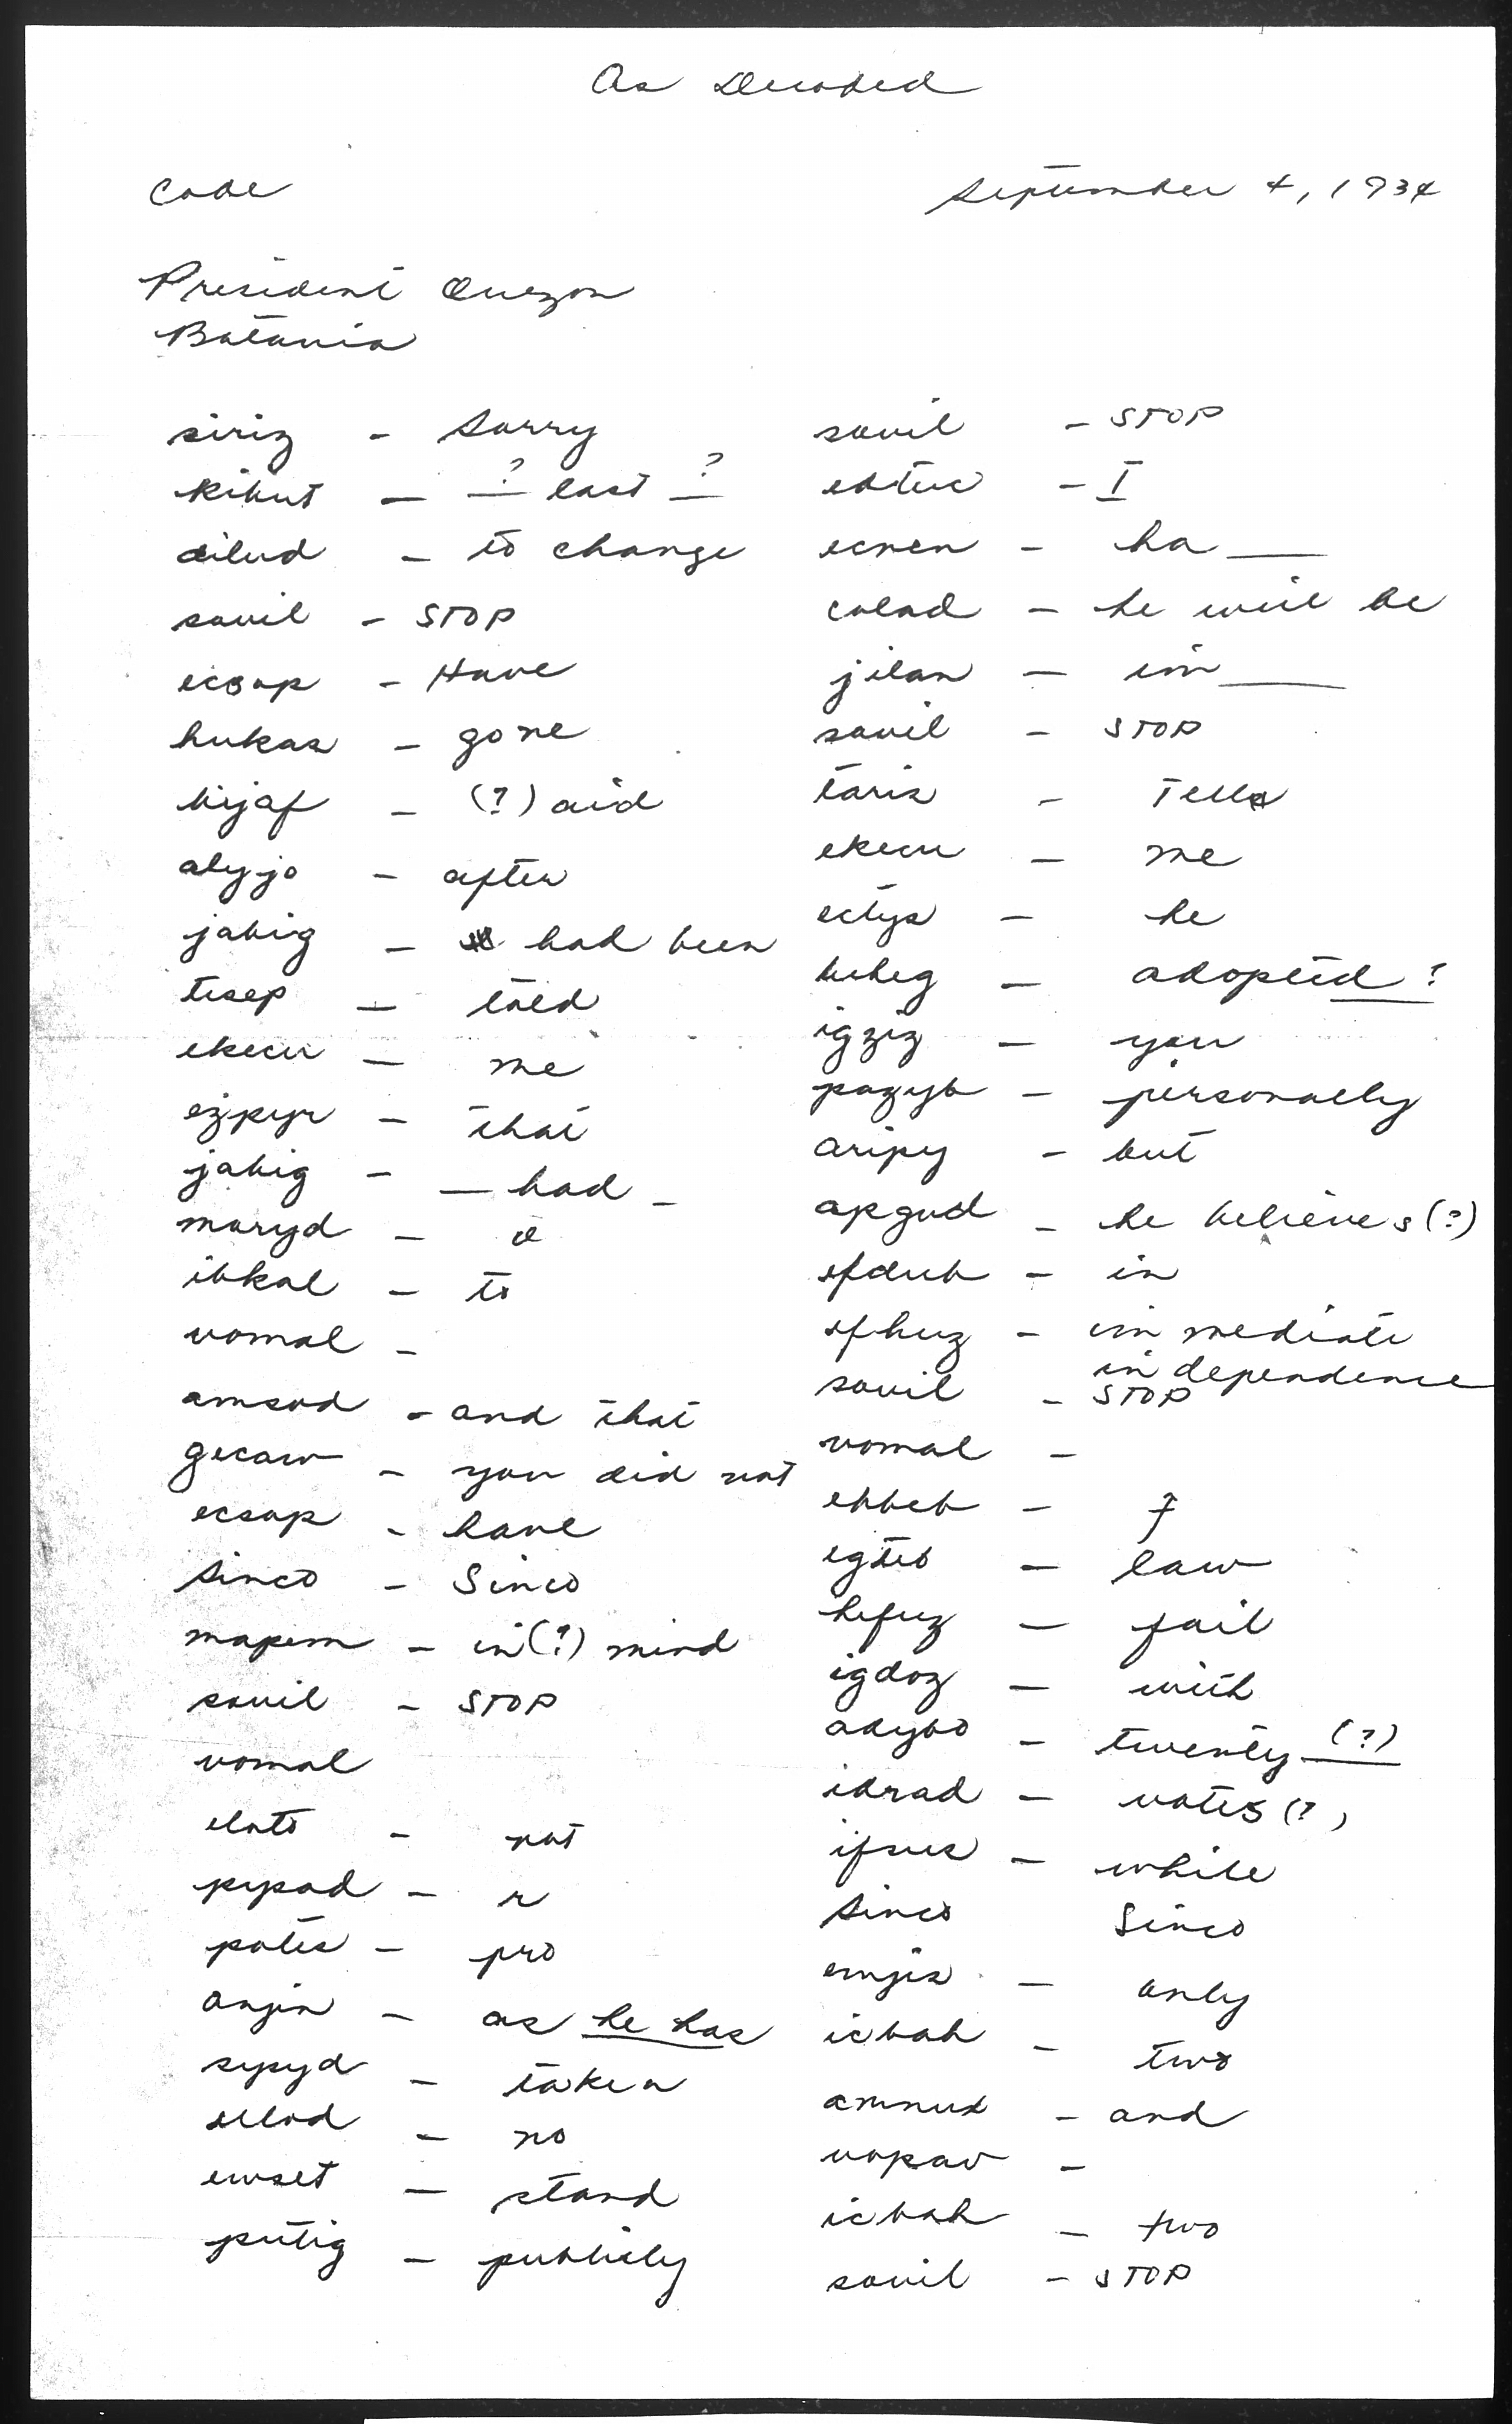 As Decoded
Code
September 4, 1934
President Quezon
Batavia
siriz - Sorry
kibut - ? last ?
dilud - to change
savil - STOP
ecsap - Have
hukas - gone
bijaf - (?) aid
alyjo - after
jabig - had been
tisep - told
ekecu - me
ezpyr - that
jabig - — had —
maryd - e
ibkal - to
vomal -
amsod - and that
gecaw - you did not
ecsap - have
Sinco - Sinco
mapem - in(?) mind
savil - STOP
vomal
elato - not
pypad - r
potes - pro
anjin - as he has
sypyd - taken
no
ewset - stand
putig - publicly
savil - STOP
- I
ecnen - ha ___
calad - he will be
jilan - im ___
savil - STOP
taris - Tell
ekecu - me
ectys - he
- adopted ?
igziz - you
pazyb - personally
aripy - but
apgud - he believes (?)
efdub - in
efhuz - immediate
independence
savil - STOP
vomal -
ebbeb - f
egteb - law
hefuz - fail
igdoz - with
adybo - twenty (?)
idrad - votes (?)
ifsus - while
Sinco Sinco
emjis - only
icbah - two
amnux - and
vopav -
icbah - two
savil - STOP